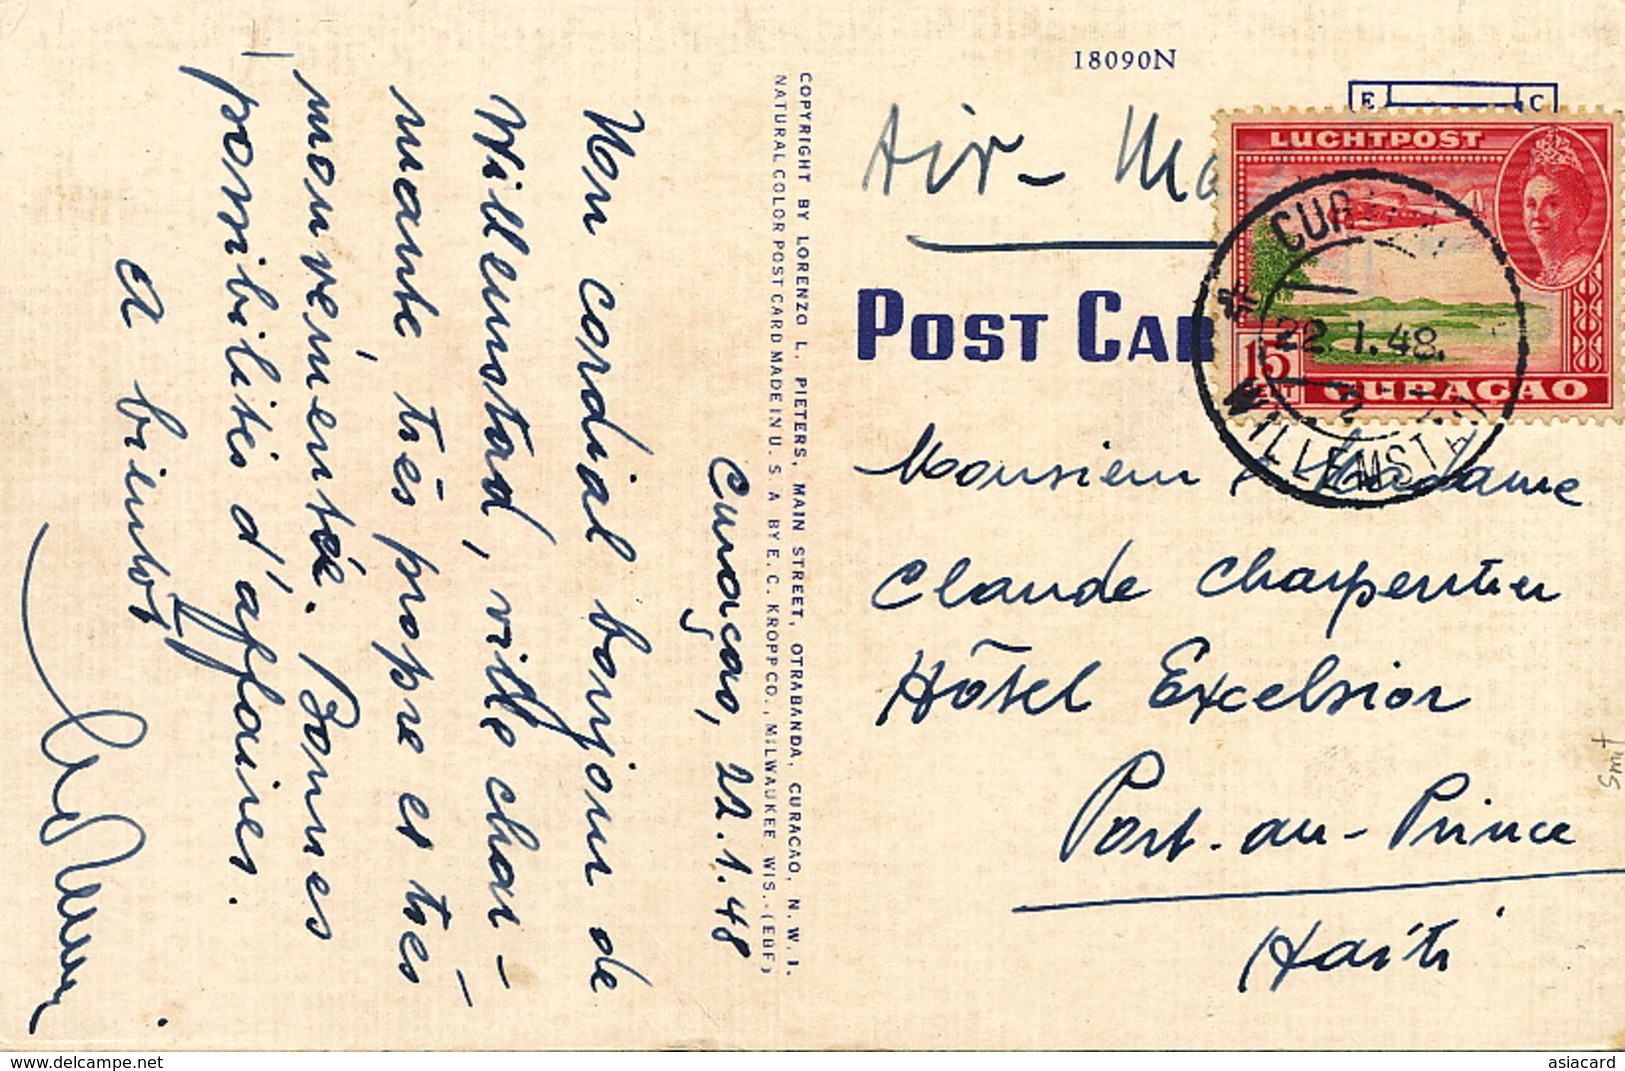 18090N
E C
Air-Ma
LUCHTPOST
15
CURAÇAO
22.1.48.
WILLEMSTAD
POST CAR
Monsieur & Madame
Claude Charpentier
Hôtel Excelsior
Port-au-Prince
Haïti
COPYRIGHT BY LORENZO L. PIETERS, MAIN STREET, OTRABANDA, CURACAO, N.W.I.
NATURAL COLOR POST CARD MADE IN U.S.A BY E.C. KROPP CO., MILWAUKEE WIS.-(EBF)
Curaçao, 22.1.48
Mon cordial bonjour de
Willemstad, ville char-
mante, très propre et très
mouvémentée. Bonnes
possibilités d'affaires.
A bientôt
delcampe.net
asiacard